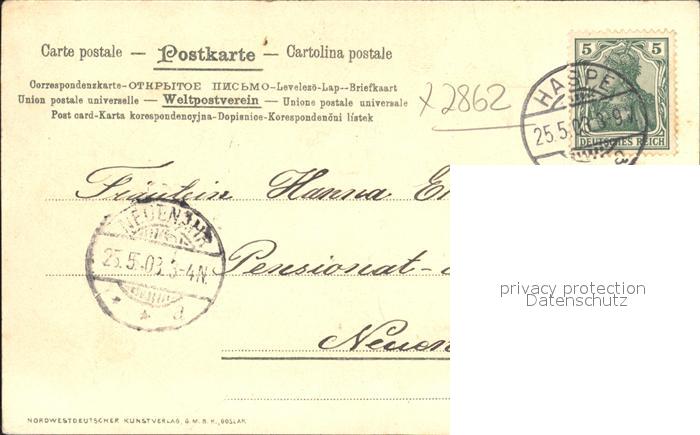 Carte postale — Postkarte — Cartolina postale
Correspondenzkarte-ОТКРЫТОЕ ПИСЬМО-Levelező-Lap--Briefkaart
Union postale universelle — Weltpostverein — Unione postale universale
Post card-Karta korespondencyjna-Dopisnice-Korespondenční lístek
x 2862
5 5
DEUTSCHES REICH
HASPE
25.5.03
Fräulein Hanna
NEUENAHR
25.5.03.3-4N.
Pensionat-
Neuen
privacy protection
Datenschutz
NORDWESTDEUTSCHER KUNSTVERLAG, G.M.B.H., GOSLAR